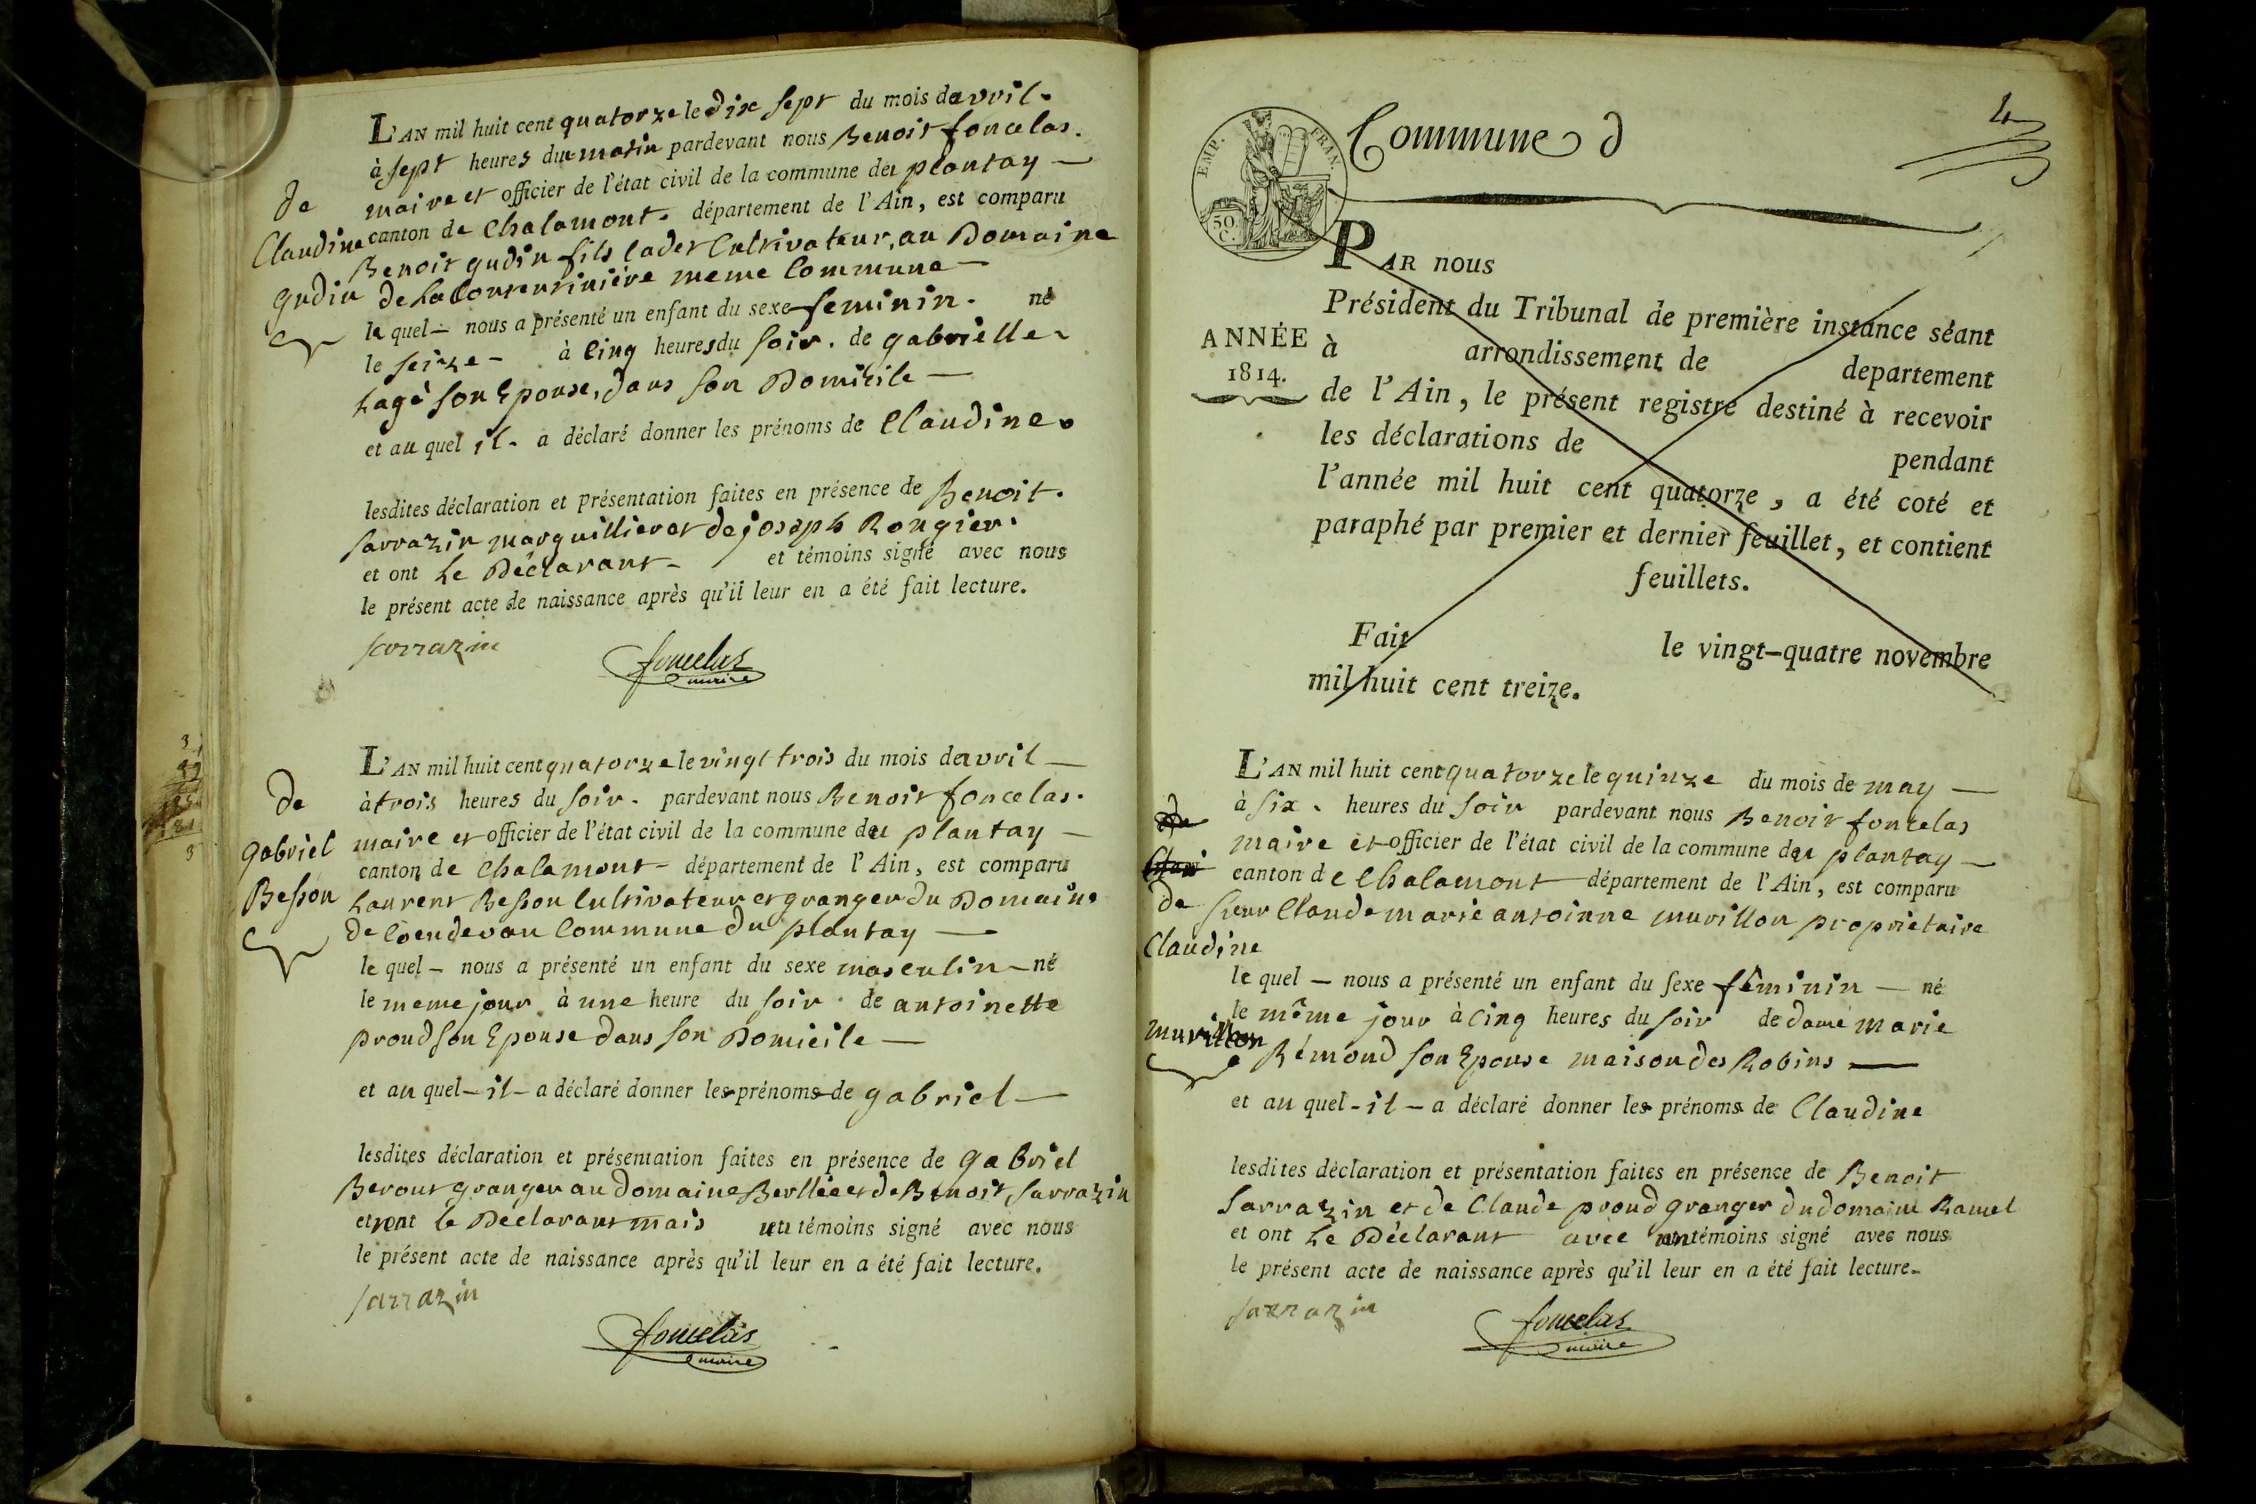 L'AN mil huit cent quatorze le dix sept du mois davril.
à sept heures du matin pardevant nous Benoit foncelas.
maire et officier de l'état civil de la commune du plantay —
canton de Chalamont. département de l'Ain, est comparu
Benoit gudin fils cadet Cultivateur, au Domaine
de La meme Commune —
le quel — nous a présenté un enfant du sexe feminin. né
le seize — à cinq heures du soir. de gabrielle
Lagé son Epouse, dans son Domicile —
et au quel il. a déclaré donner les prénoms de Claudine.
lesdites déclaration et présentation faites en présence de Benoit.
sarrazin marguillier et de joseph Rongier.
et ont Le Déclarant — et témoins signé avec nous
le présent acte de naissance après qu'il leur en a été fait lecture.
sarrazin
foncelas
maire
de
Claudine
gudin
L'AN mil huit cent quatorze le vingt trois du mois davril —
à trois heures du soir. pardevant nous Benoit foncelas.
maire et officier de l'état civil de la commune du plantay —
canton de Chalamont — département de l'Ain, est comparu
Laurent Besson Cultivateur et granger du Domaine
de Commune du plantay —
le quel — nous a présenté un enfant du sexe masculin — né
le meme jour à une heure du soir. de antoinette
proud son Epouse dans son Domicile —
et au quel — il — a déclaré donner les prénoms de gabriel —
lesdites déclaration et présentation faites en présence de gabriel
Berout granger au domaine Berlliée et de Benoit, sarrazin
et ont le Déclarant mais un témoins signé avec nous
le présent acte de naissance après qu'il leur en a été fait lecture.
sarrazin
foncelas
maire
de
gabriel
Besson
4
EMP. FRAN.
50
C.
Commune d
PAR nous
Président du Tribunal de première instance séant
à arrondissement de departement
de l'Ain, le présent registre destiné à recevoir
les déclarations de pendant
l'année mil huit cent quatorze, a été coté et
paraphé par premier et dernier feuillet, et contient
feuillets.
Fait le vingt-quatre novembre
mil huit cent treize.
ANNÉE
1814.
L'AN mil huit cent quatorze le quinze du mois de may —
à six. heures du soir pardevant nous Benoit foncelas
maire et officier de l'état civil de la commune du plantay —
canton de Chalamont département de l'Ain, est comparu
sieur Claude marie antoinne murillon proprietaire
le quel — nous a présenté un enfant du sexe féminin — né
le même jour à cinq heures du soir de dame marie
Rémond son Epouse maison des Robins —
et au quel — il — a déclaré donner les prénoms de Claudine
lesdites déclaration et présentation faites en présence de Benoit
Sarrazin et de Claude proud granger du domaine Ramel
et ont Le Déclarant avec un témoins signé avec nous
le présent acte de naissance après qu'il leur en a été fait lecture.
sarrazin
foncelas
maire
de
Claudine
murillon